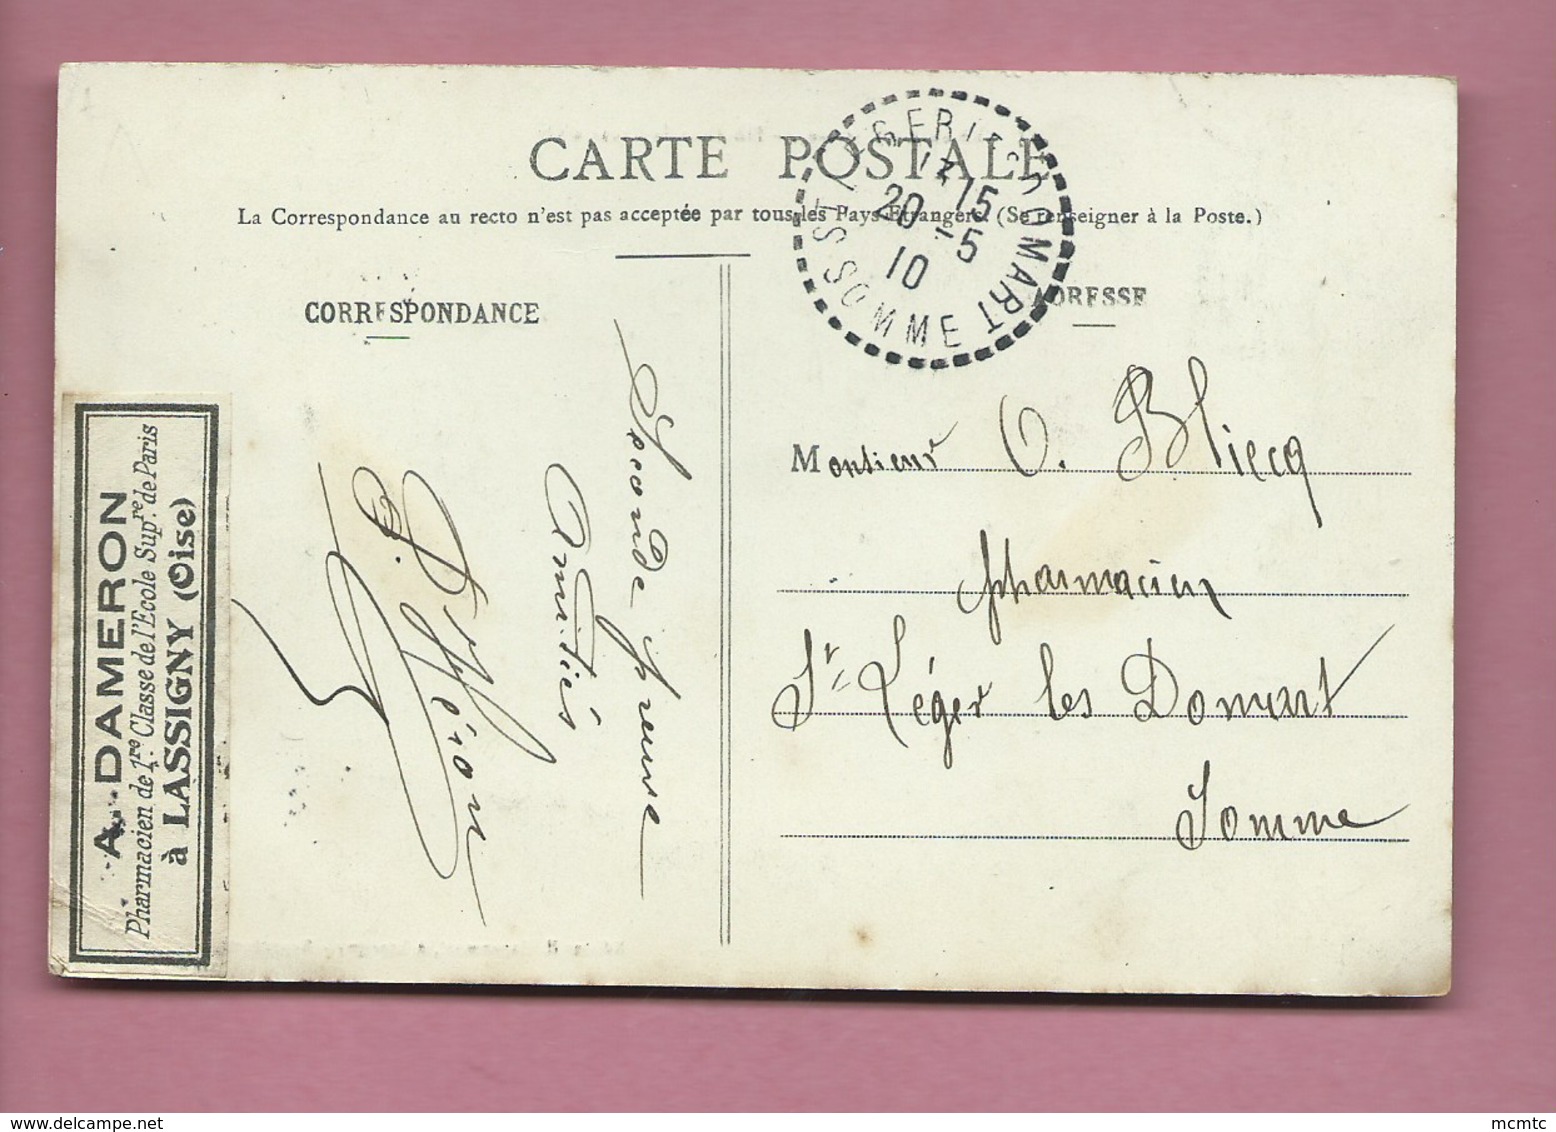 CARTE POSTALE
La Correspondance au recto n'est pas acceptée par tous les Pays Etrangers. (Se renseigner à la Poste.)
CORRESPONDANCE
ADRESSE
ST LEGER LES DOMART
SOMME
12 15
20 - 5
10
Seconde preuve
Amitiés
Héron
Monsieur O. Bliecq
pharmacien
St Léger les Domart
Somme
A. DAMERON
Pharmacien de 1re Classe de l'Ecole Supre de Paris
à LASSIGNY (Oise)
mcmtc